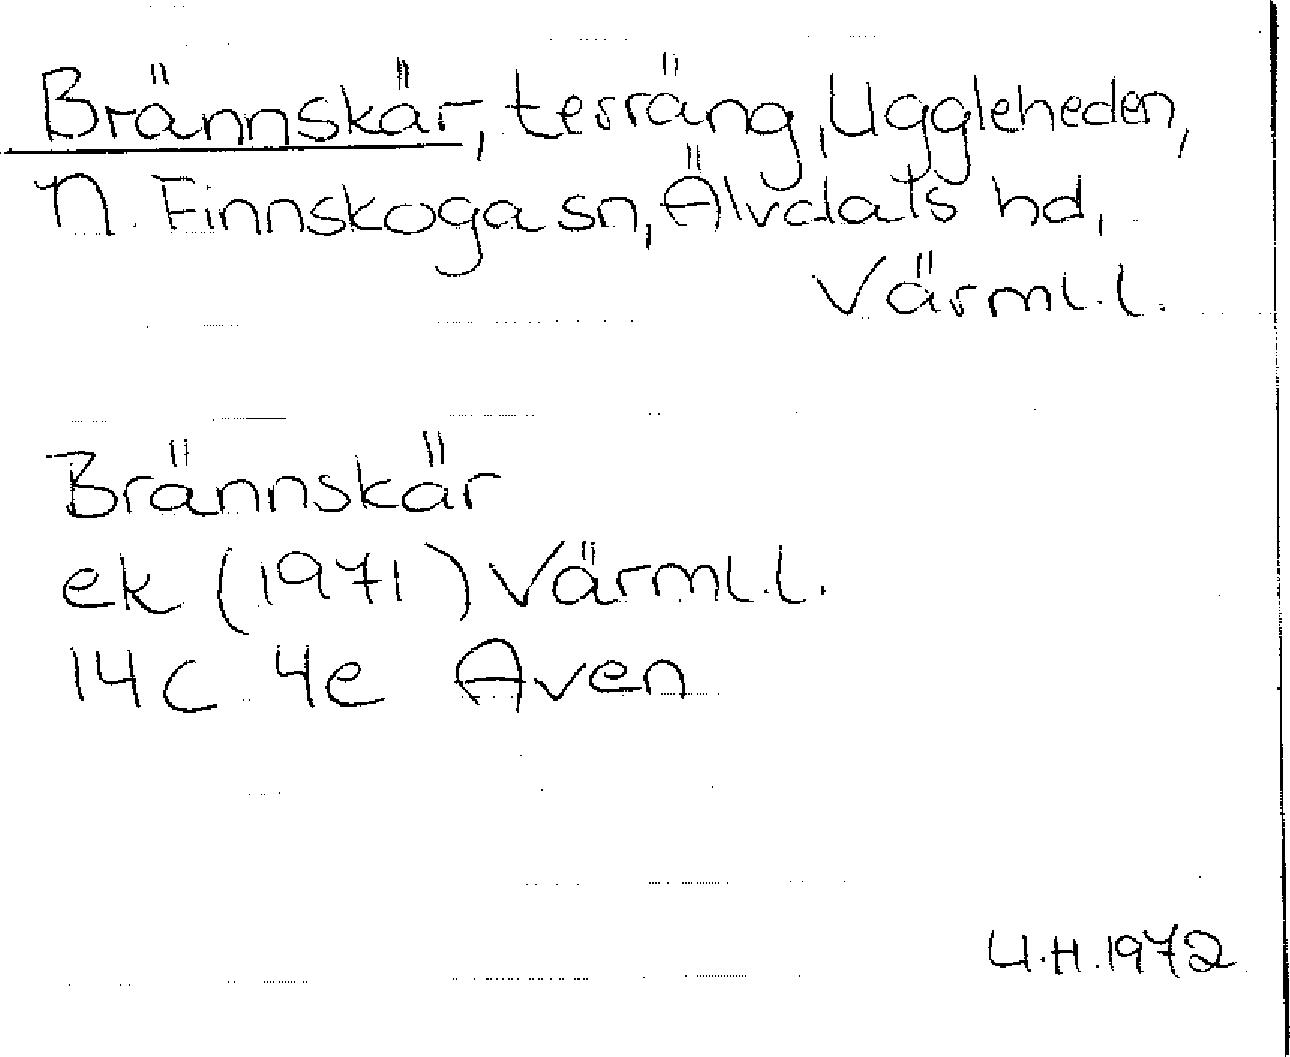 Brännskär, terräng, Uggleheden,
N. Finnskoga sn, Älvdals hd,
Värml. l.
Brännskär
ek (1971) Värml. l.
14C 4e Aven
U.H. 1972